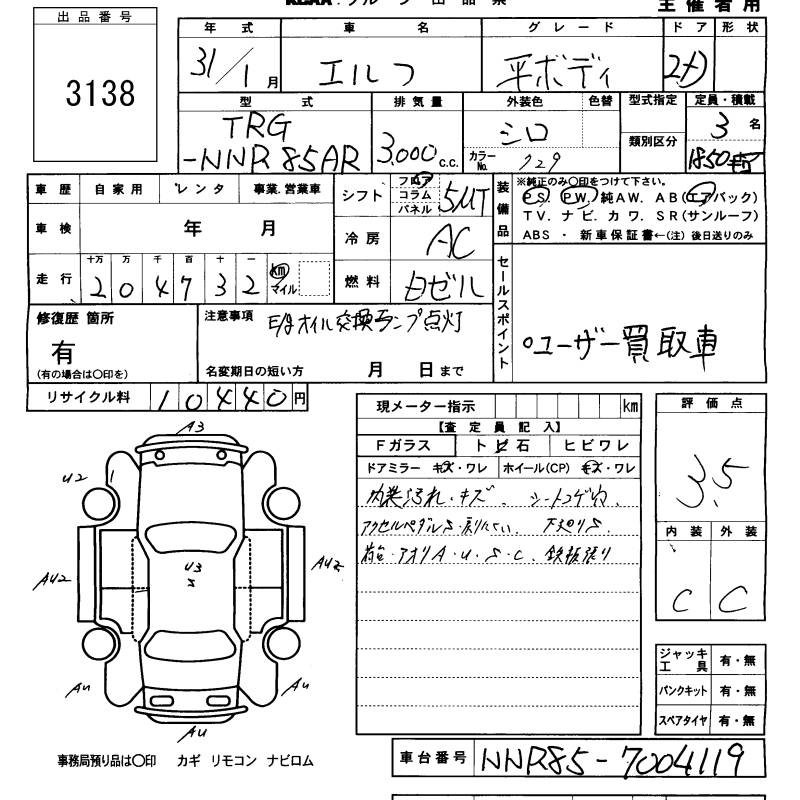 出品番号
3138
主催者用
年式 車名 グレード ドア 形状
31/1月 エルフ 平ボディ 2
型式 排気量 外装色 色替 型式指定 定員・積載
TRG
-NNR85AR 3,000c.c. シロ 類別区分 3名
カラーNo. 729 1850
車歴 自家用 レンタ 事業.営業車 シフト フロア コラム パネル 5MT
装備品 ※純正のみ〇印をつけて下さい。
PS. PW. 純AW. AB(エアバック)
TV. ナビ. カワ. SR(サンルーフ)
ABS ・ 新車保証書←(注)後日送りのみ
車検 年 月 冷房 AC
走行 十万 万 千 百 十 一
204732 km マイル 燃料 白ゼル
セールスポイント
○ユーザー買取車
修復歴 箇所
有
(有の場合は〇印を)
注意事項 E/gオイル交換ランプ点灯
名変期日の短い方 月 日まで
リサイクル料 10440円
現メーター指示 km
【査定員記入】
Fガラス トビ石 ヒビワレ
ドアミラー キズ・ワレ ホイール(CP) キズ・ワレ
内装汚れ・キズ、シートコゲ穴、
アクセルペダルS・戻りにくい、下廻りS
荷台・アオリA・U・S・C、鉄板張り
評価点
3.5
内装 外装
C C
A3
U2
U3
S
AU2
AU2
AU
AU
AU
ジャッキ工具 有・無
パンクキット 有・無
スペアタイヤ 有・無
事務局預り品は〇印 カギ リモコン ナビロム
車台番号 NNR85-7004119